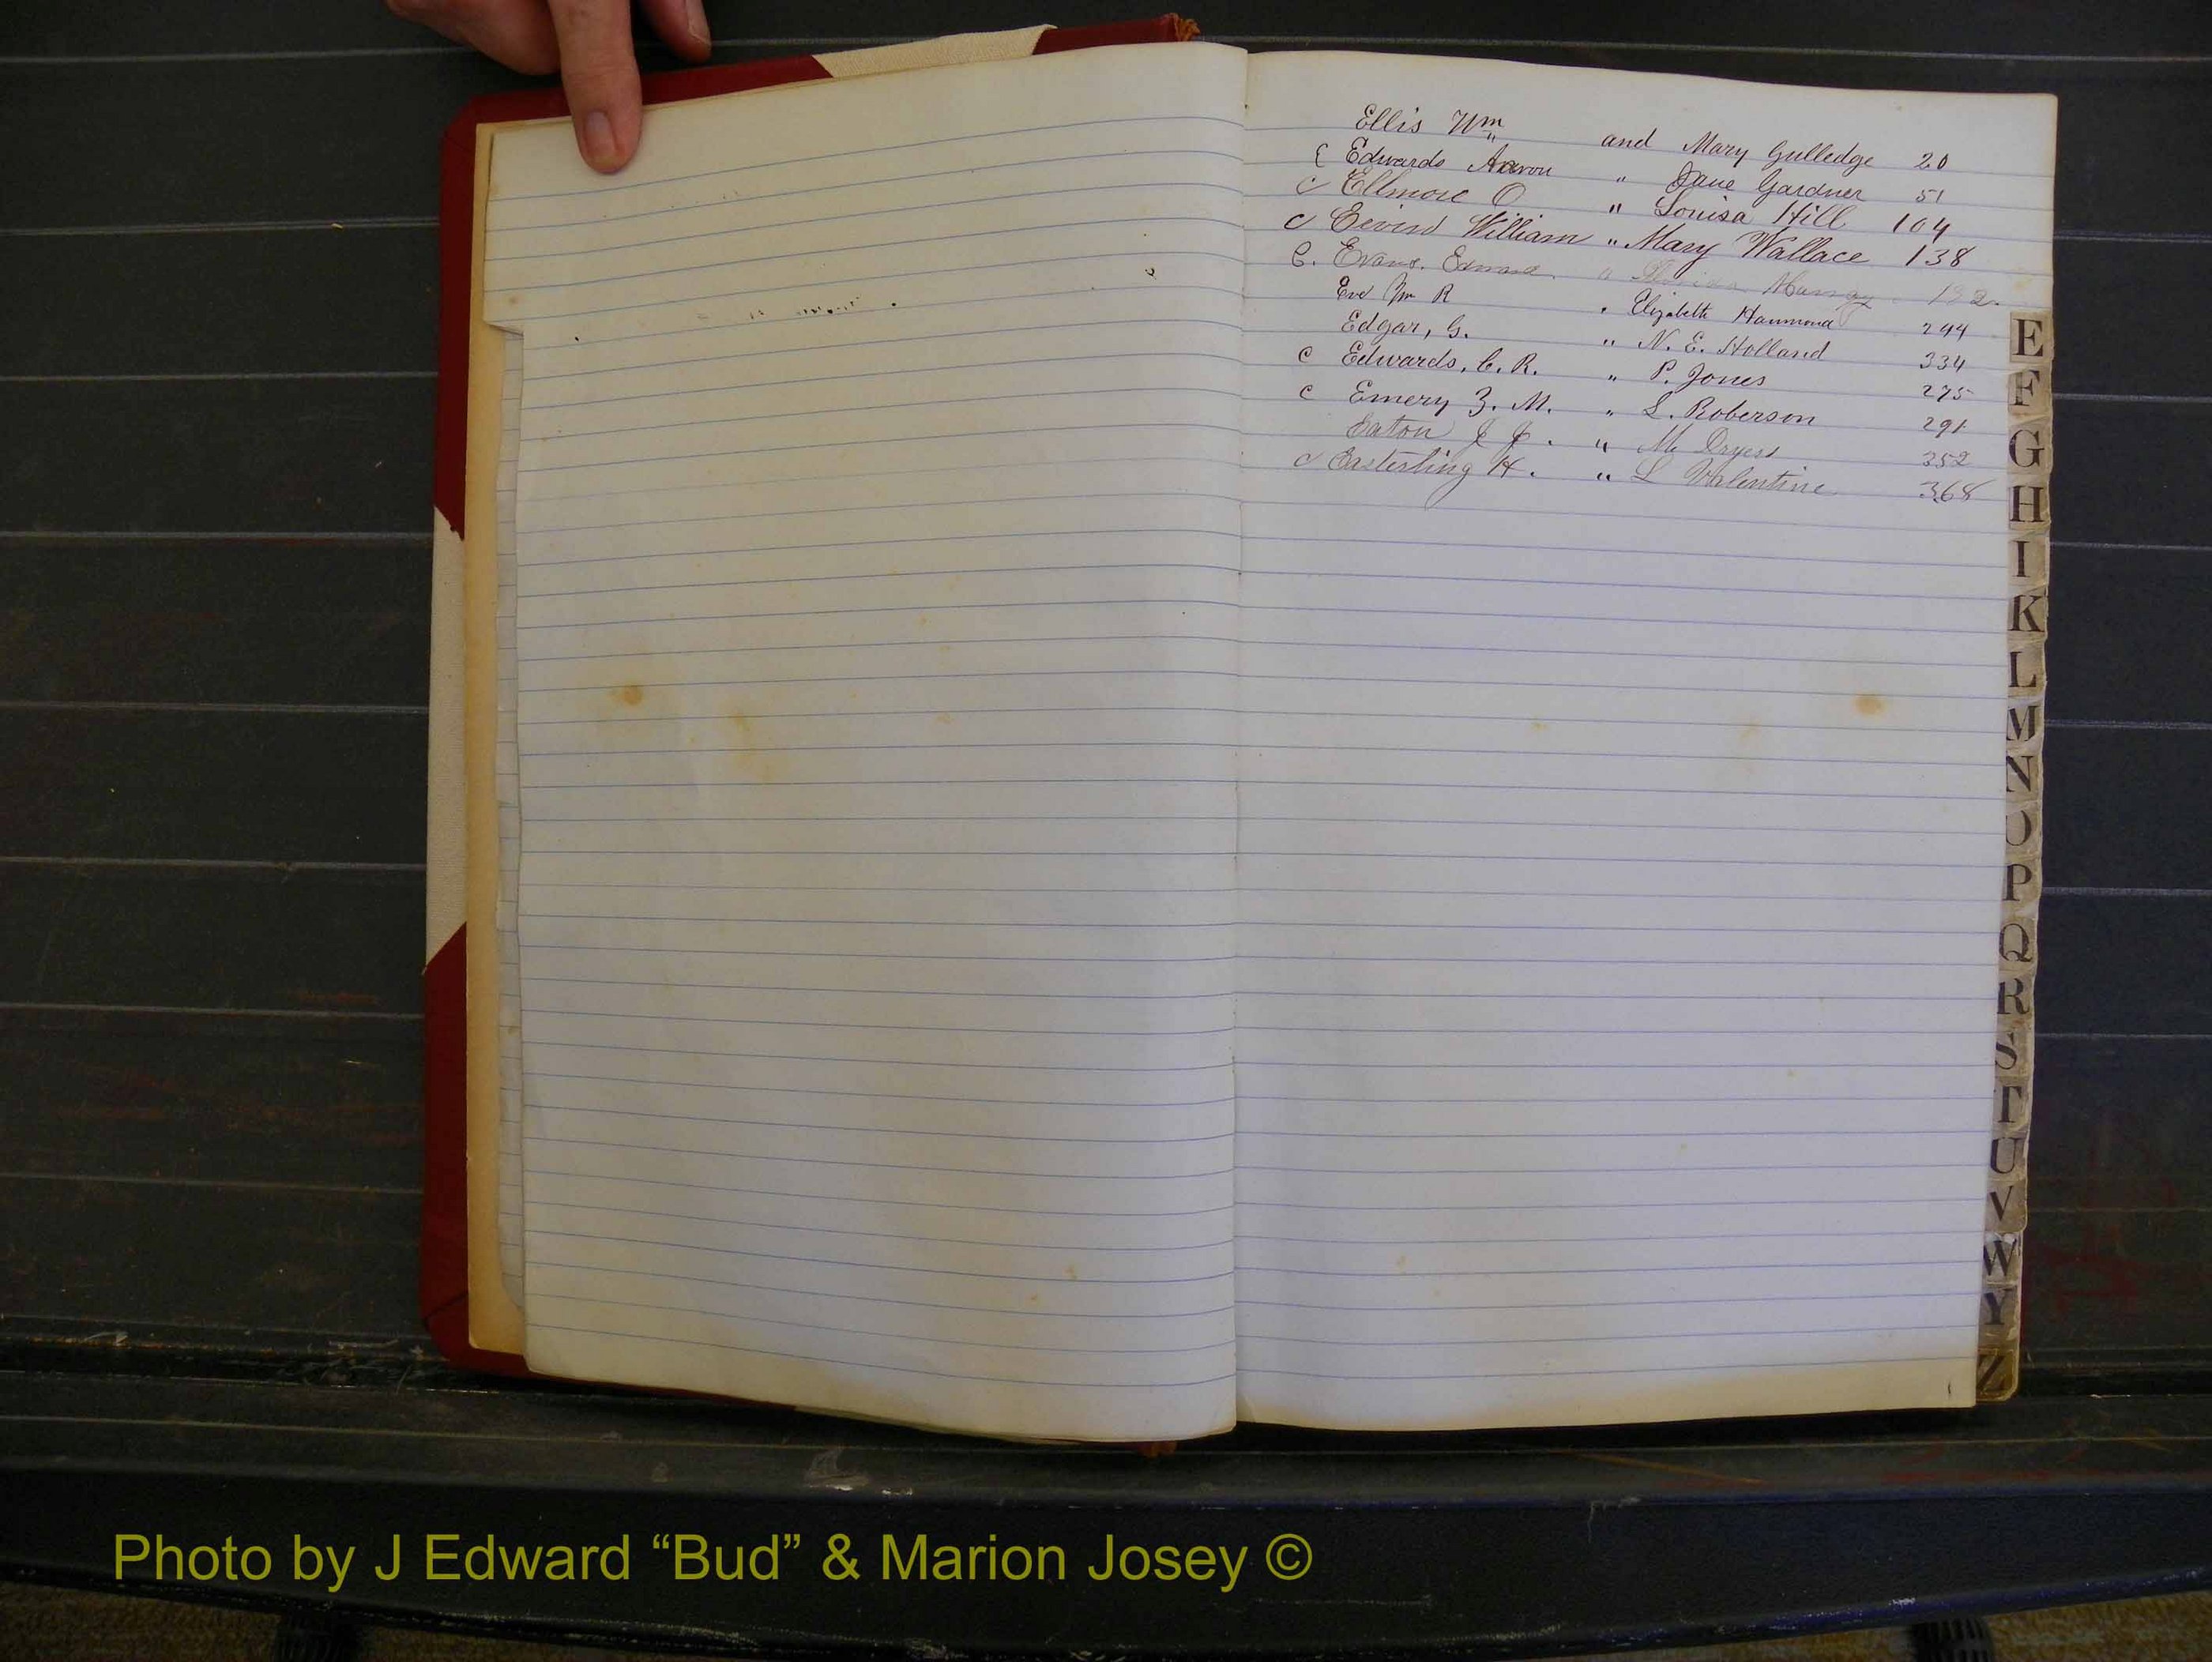 Ellis Wm and Mary Gulledge 20
C Edwards Aaron " Jane Gardner 51
c Ellmore O " Louisa Hill 104
c Eevind William " Mary Wallace 138
C. Evans. Edward. "
Eve Wm R " Elizabeth Hammond 244
Edgar, G. " N. E. Holland 334
c Edwards, C. R. " P. Jones 275
c Emery Z. M. " L. Roberson 291
Eaton J J. " M. Dryers 352
c Easterling H. " L Valentine 368
E
F
G
H
I
K
L
M
N
O
P
Q
R
S
T
U
V
W
Y
Z
Photo by J Edward “Bud” & Marion Josey ©